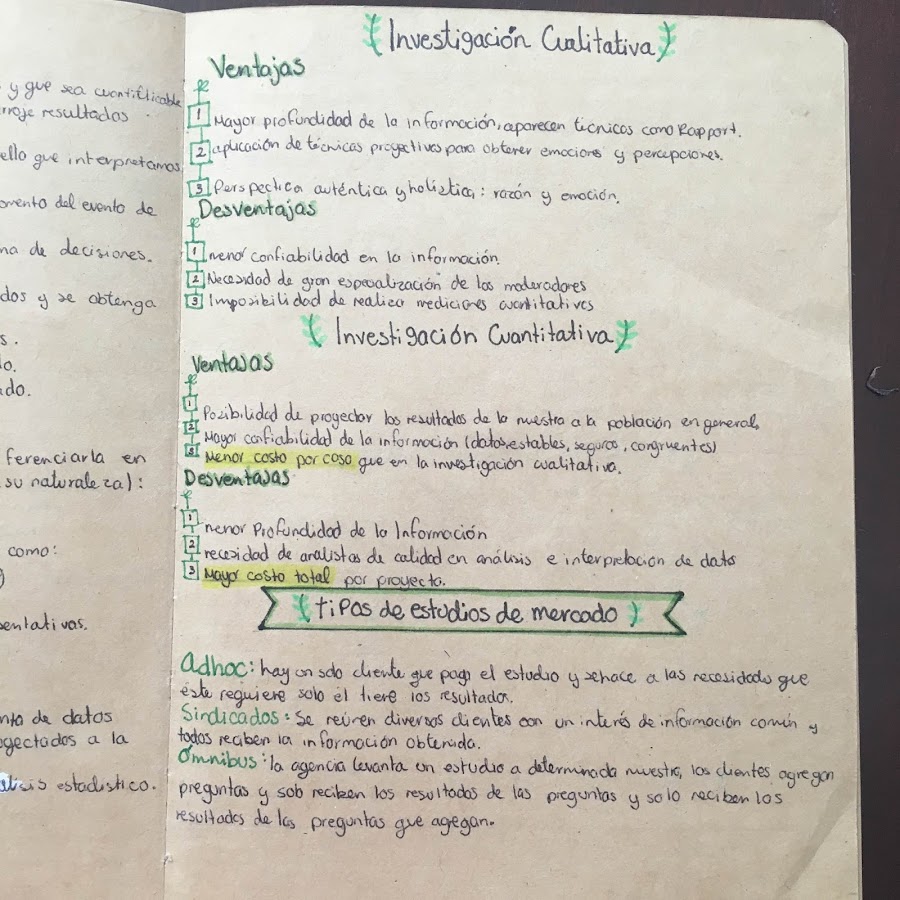 y que sea cuantificable
rroje resultados.
ello que interpretamos
omento del evento de
ma de decisiones.
dos y se obtenga
s.
lo.
ado.
ferenciarla en
su naturaleza):
como:
)
sentativas.
nto de datos
oyectados a la
alisis estadistico.
Investigación Cualitativa
Ventajas
1 Mayor profundidad de la información, aparecen técnicas como Rapport.
2 aplicación de técnicas proyectivas para obtener emociones y percepciones.
3 Perspectica auténtica y holiztica,: razón y emoción.
Desventajas
1 menor confiabilidad en la información.
2 Necesidad de gran especialización de los moderadores
3 Imposibilidad de realizar mediciones cuantitativas
Investigación Cuantitativa
Ventajas
1 Pozibilidad de proyectar los resultados de la muestra a la población en general,
2 Mayor confiabilidad de la información (datos, estables, seguros, congruentes)
3 Menor costo por caso que en la investigación cualitativa.
Desventajas
1 menor Profundidad de la Información
2 necesidad de analistas de calidad en análisis e interpretacion de dato
3 Mayor costo total por proyecto.
tipos de estudios de mercado
adhoc: hay un solo cliente que paga el estudio y se hace a las necesidads que
éste requiere solo él tiene los resultados.
Sindicados: Se reúnen diversos clientes con un interés de información común y
todos reciben la información obtenida.
Omnibus: la agencia levanta un estudio a determinada muestra, los clientes agregan
preguntas y solo reciben los resultados de las preguntas y solo reciben los
resultados de las preguntas que agegan.